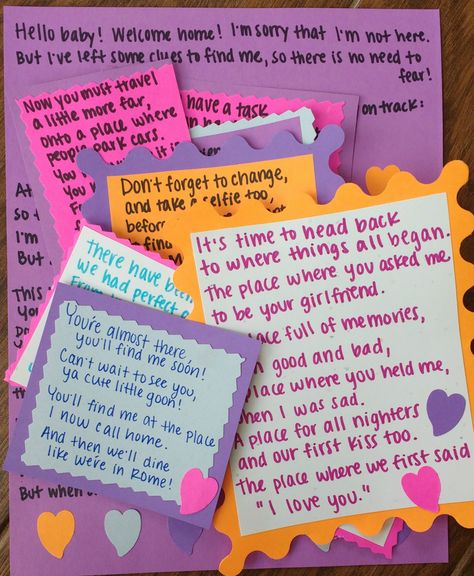 Hello baby! Welcome home! I'm sorry that I'm not here.
But I've left some clues to find me, so there is no need to
fear!
have a task
on track:
Now you must travel
a little more far,
onto a place where
people park cars.
You
it i
You k
Don't forget to change,
and take a selfie too,
befor
to find
At
so
I'm
But
This
You
so
there have been
we had perfect
From
It's time to head back
to where things all began.
The place where you asked me
to be your girlfriend.
ace full of memories,
good and bad,
place where you held me,
when I was sad.
A place for all nighters
and our first kiss too.
The place where we first said
"I love you."
You're almost there
you'll find me soon!
Can't wait to see you,
ya cute little goon!
You'll find me at the place
I now call home.
And then we'll dine
like we're in Rome!
But when